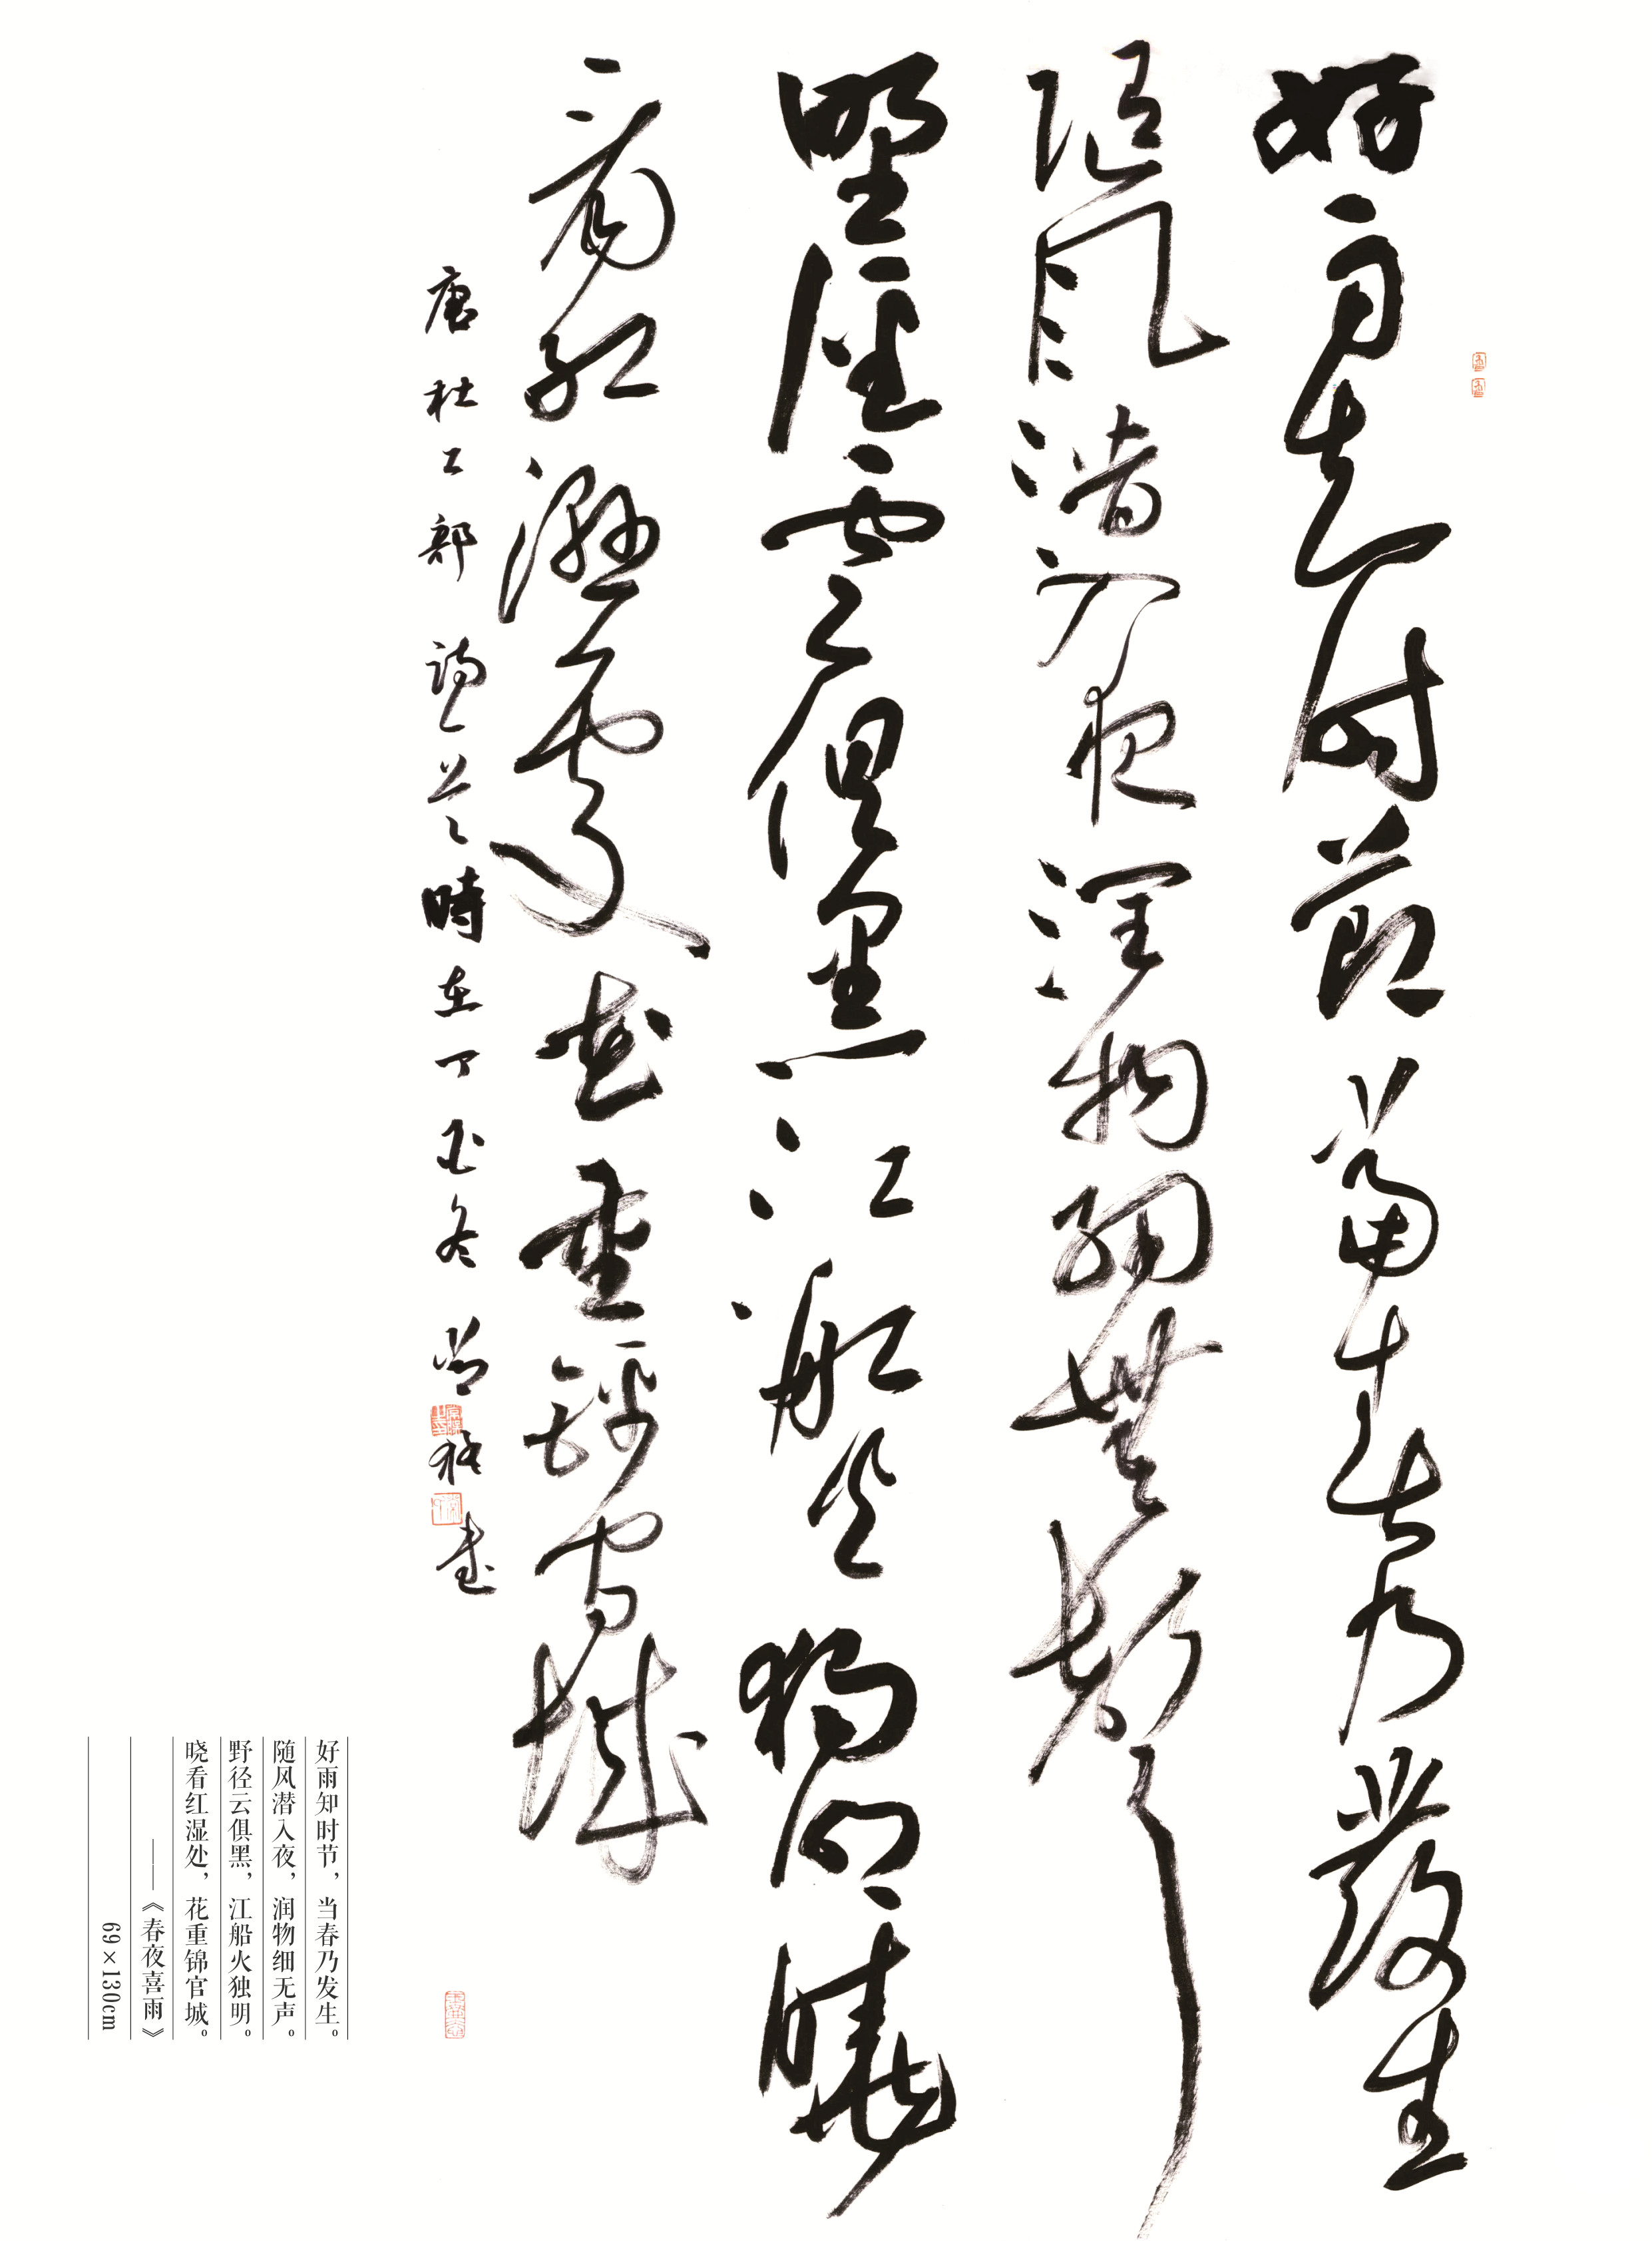 好雨知时节当春乃發生
随风潜入夜润物细無聲
野径雲俱黑江船火独明晓
看红湿處花重锦官城
唐杜工部詩一首時在丁酉冬
書
好雨知时节，当春乃发生。
随风潜入夜，润物细无声。
野径云俱黑，江船火独明。
晓看红湿处，花重锦官城。
——《春夜喜雨》
69×130cm